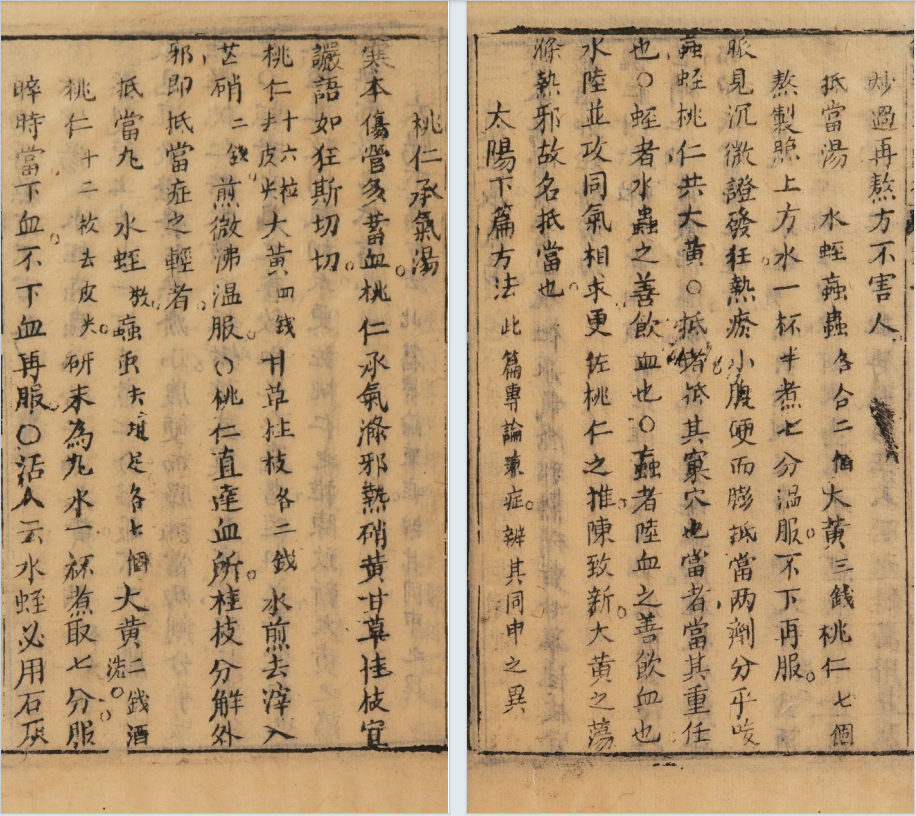 桃仁承氣湯
寒本傷營多蓄血桃仁承氣滌邪熱硝黃甘草桂枝宜
讝語如狂斯切切
桃仁十六粒去皮尖大黃四錢甘草桂枝各二錢水煎去滓入
芒硝二錢煎微沸溫服○桃仁直達血所桂枝分解外
邪即抵當症之輕者
抵當丸 水蛭熬蝱虫去翅足各七個大黃二錢酒洗
桃仁十二枚去皮尖研末為丸水一杯煮取七分服
晬時當下血不下血再服○沾人云水蛭必用石灰
炒過再熬方不害人
抵當湯 水蛭蝱蟲各合二個大黃三錢桃仁七個
熬製照上方水一杯半煮七分溫服不下再服
脈見沉微證發狂熱瘀小腹便而膨抵當两劑分乎峻
蝱蛭桃仁共大黃○抵者抵其窠穴也當者當其重任
也○蛭者水蟲之善飲血也○蝱者陸血之善飲血也
水陸並攻同氣相求更佐桃仁之推陳致新大黃之蕩
滌熱邪故名抵當也
太陽下篇方法 此篇專論兼症辨其同申之異